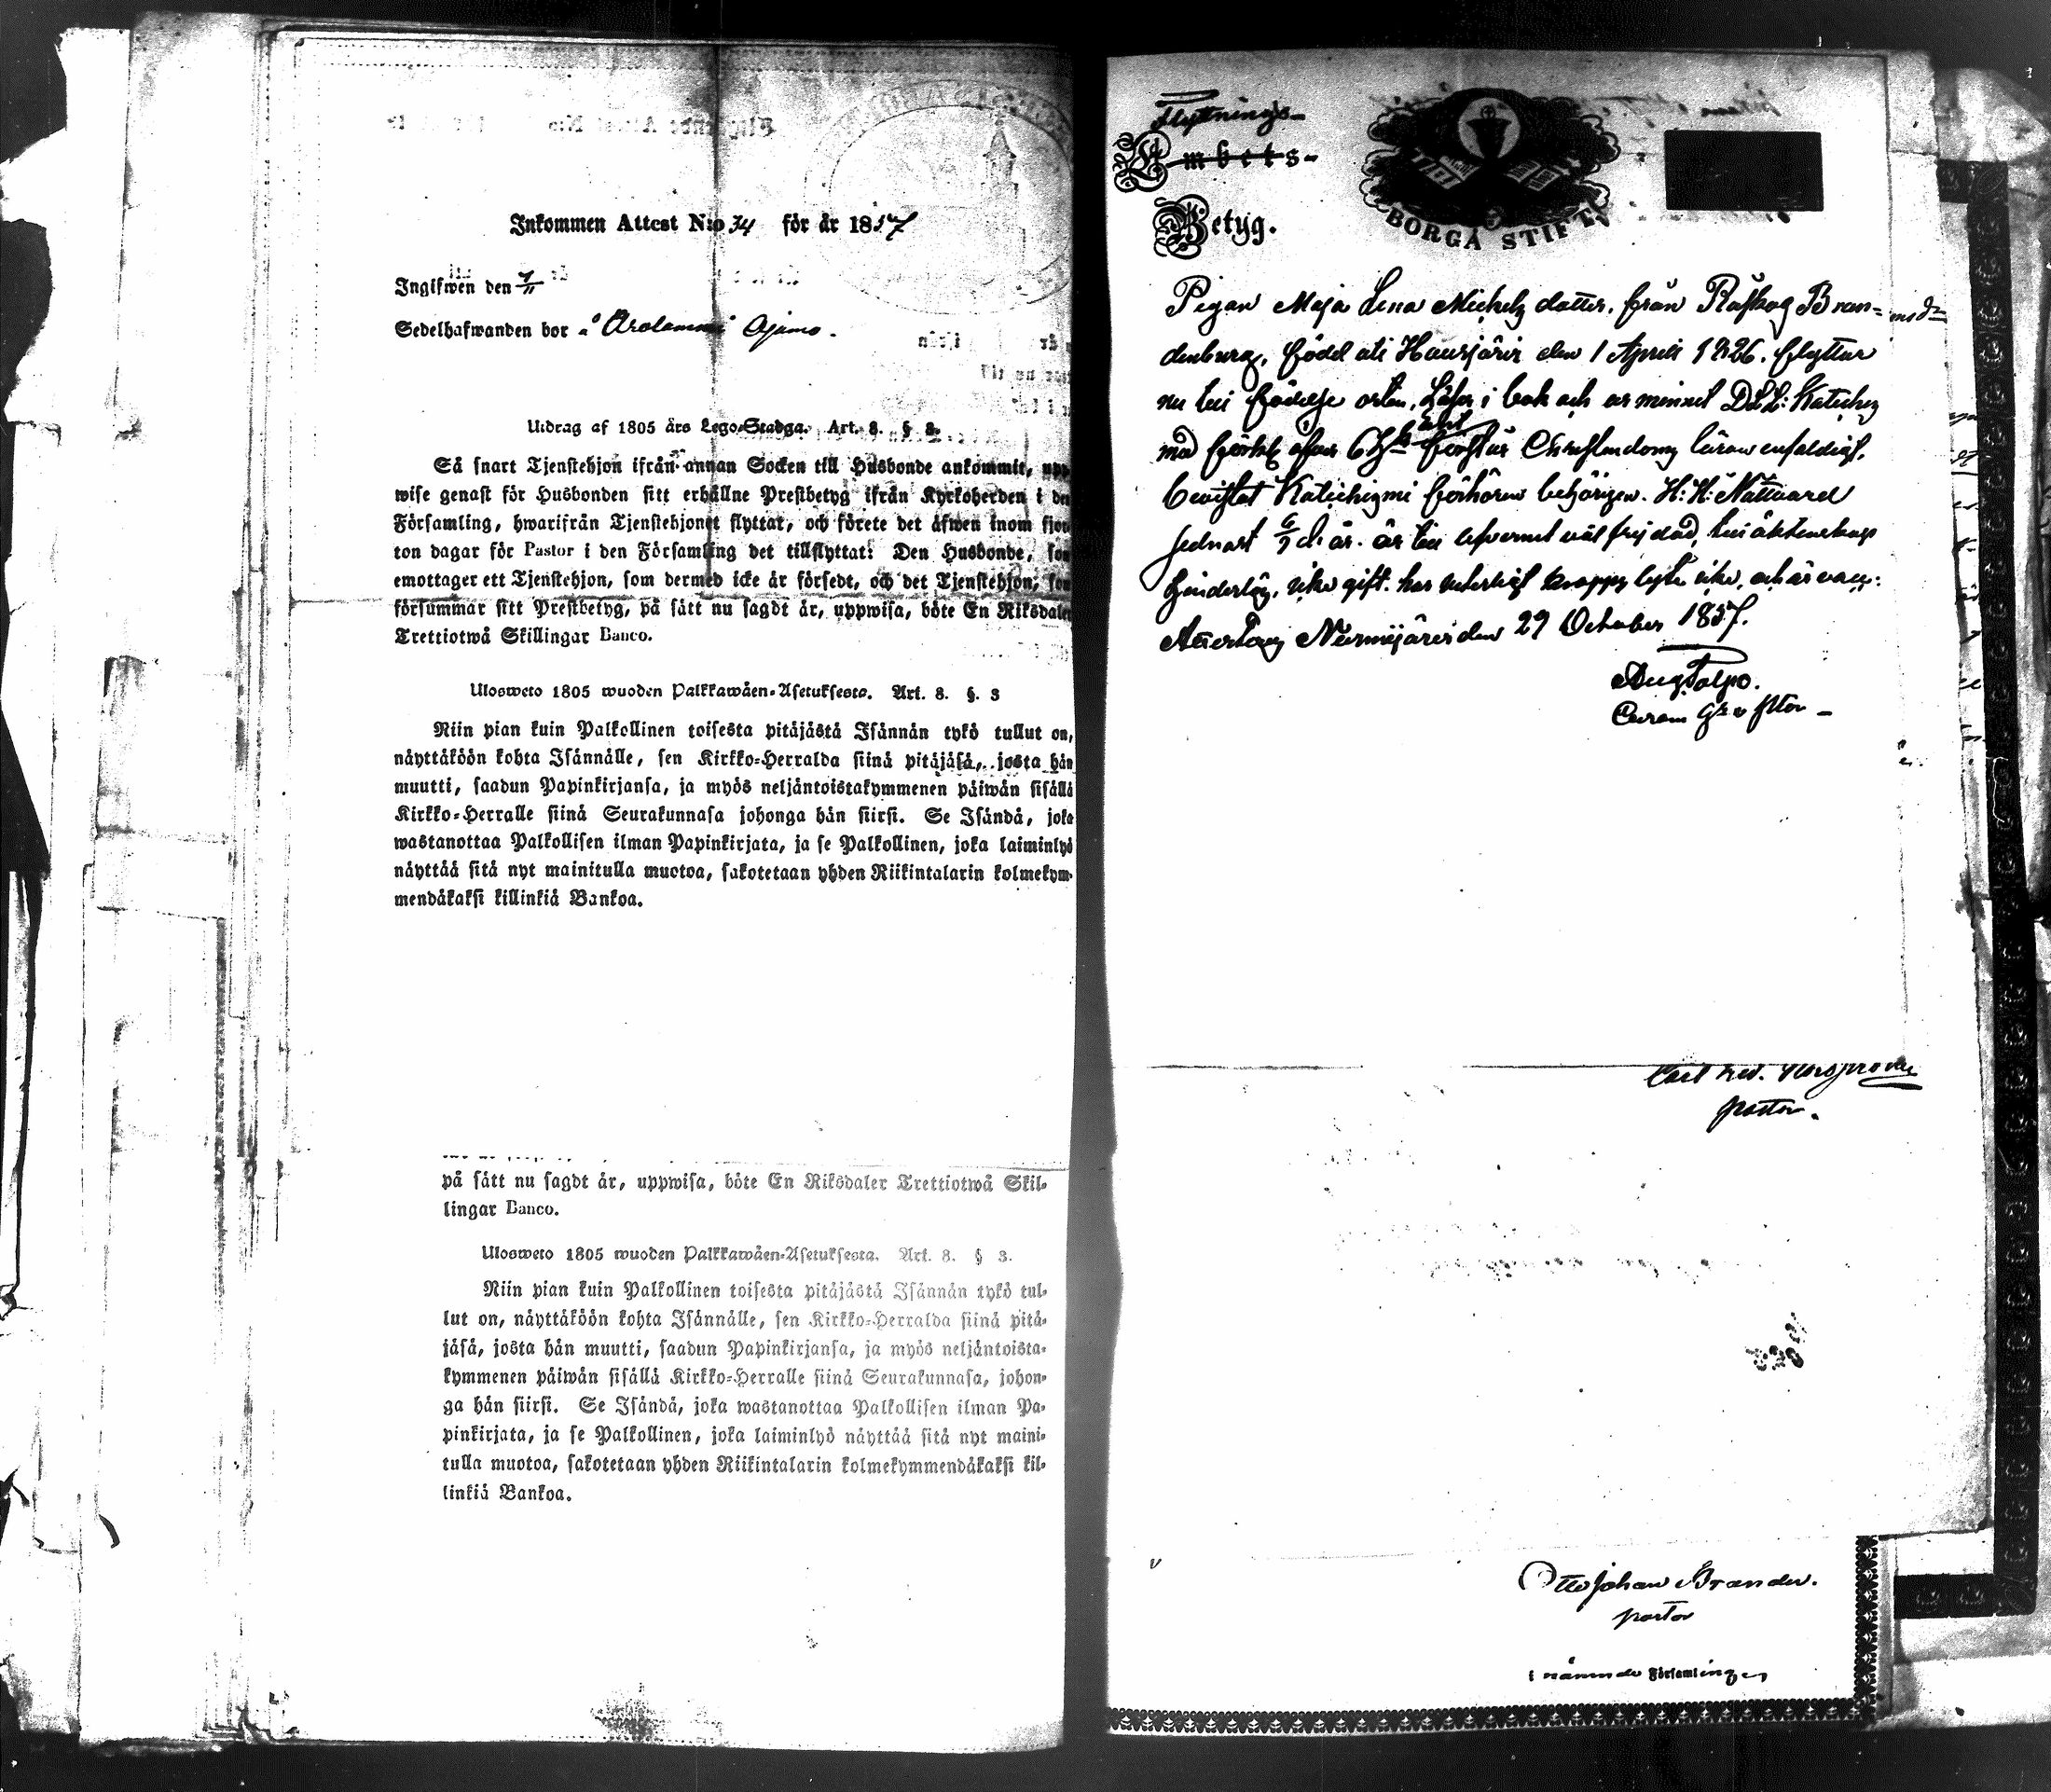 Inkommen Attest N:o 34 för år 1857
Ingifwen den 7/11
Sedelhafwanden bor å Arolammi Ajamo.
Utdrag af 1805 års Lego-Stadga. Art. 8. § 3.
Så snart Tjenstehjon ifrån annan Socken till Husbonde ankommit, upp-
wise genast för Husbonden sitt erhållne Prestbetyg ifrån Kyrkoherden i den
Församling, hwarifrån Tjenstehjonet flyttat, och förete det äfwen inom fjor-
ton dagar för Pastor i den Församling det tillflyttat: Den Husbonde, som
emottager ett Tjenstehjon, som dermed icke är försedt, och det Tjenstehjon, som
försummar sitt Prestbetyg, på sätt nu sagdt är, uppwisa, böte En Riksdaler
Trettiotwå Skillingar Banco.
Ulosweto 1805 wuoden Palkkawäen-Asetuksesta. Art. 8. §. 3
Niin pian kuin Palkollinen toisesta pitäjästä Isännän tykö tullut on,
näyttäköön kohta Isännälle, sen Kirkko-Herralda siinä pitäjäsä, josta hän
muutti, saadun Papinkirjansa, ja myös neljäntoistakymmenen päiwän sisällä
Kirkko-Herralle siinä Seurakunnasa johonga hän siirsi. Se Isändä, joka
wastanottaa Palkollisen ilman Papinkirjata, ja se Palkollinen, joka laiminlyö
näyttää sitä nyt mainitulla muotoa, sakotetaan yhden Riikintalarin kolmekym-
mendäkaksi killinkiä Bankoa.
på sätt nu sagdt är, uppwisa, böte En Riksdaler Trettiotwå Skil-
lingar Banco.
Ulosweto 1805 wuoden Palkkawäen-Asetuksesta. Art. 8. § 3.
Niin pian kuin Palkollinen toisesta pitäjästä Isännän tykö tul-
lut on, näyttäköön kohta Isännälle, sen Kirkko-Herralda siinä pitä-
jäsä, josta hän muutti, saadun Papinkirjansa, ja myös neljäntoista-
kymmenen päiwän sisällä Kirkko-Herralle siinä Seurakunnasa, johon-
ga hän siirsi. Se Isändä, joka wastanottaa Palkollisen ilman Pa-
pinkirjata, ja se Palkollinen, joka laiminlyö näyttää sitä nyt maini-
tulla muotoa, sakotetaan yhden Riikintalarin kolmekymmendäkaksi kil-
linkiä Bankoa.
Flyttnings-
Ambets-
Betyg.
BORGÅ STIFT
Pigan Maja Lena Michelsdotter, från Råskog Bran-
denburg, född uti Hausjärvi den 1 April 1826. flyttar
nu till födelse orten. Läser i bok och ur minnet D.L.L: Kateches
med förkl. öfver
bevistat Katechismi förhören behörigen. H: H: Nattvard
sednast d. år. är till lefvernet väl frejdad, till äktenskap
hinderlös, icke gift. har naturligt koppor lyte icke, och är vacc:
Attesteras Nurmijärvi den 29 October 1857.
Aug. Palpo.
pastor.
Otto Johan Brander.
pastor
i nämnde Församling